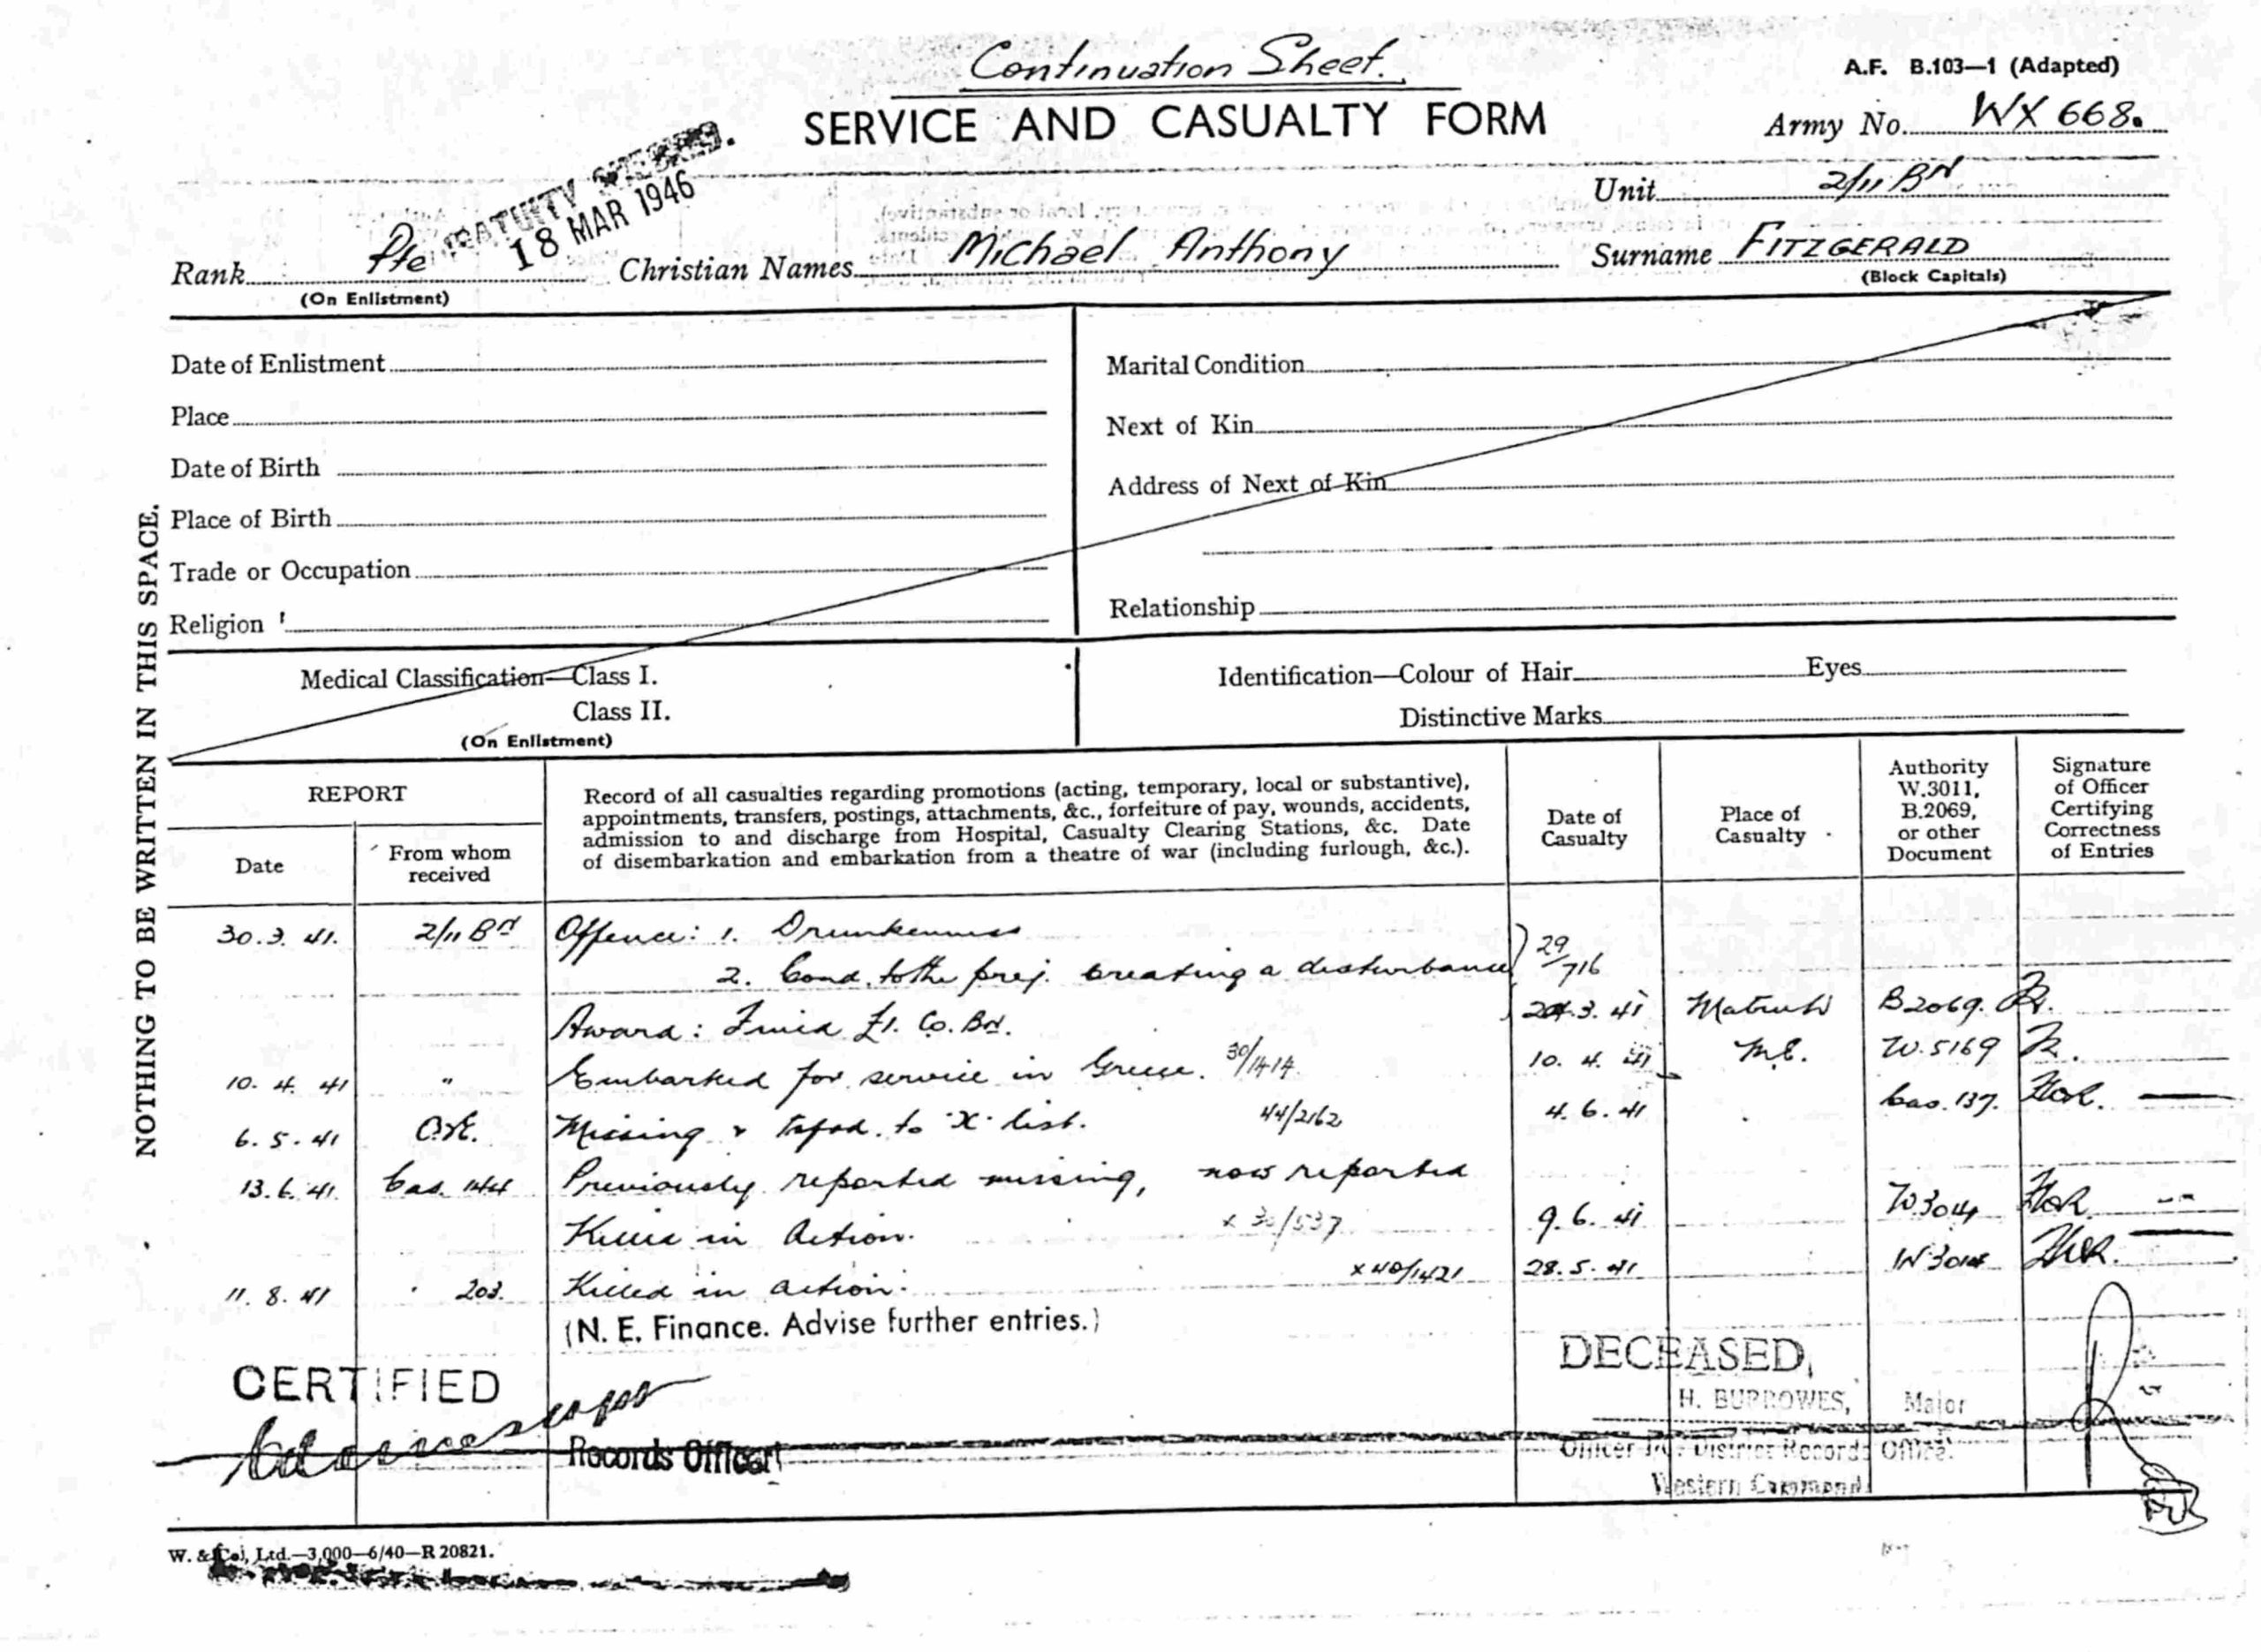 Continuation Sheet.
A.F. B.103—1 (Adapted)
SERVICE AND CASUALTY FORM
Army No. WX 668.
GRATUITY
18 MAR 1946
Unit 2/11 Bn
Rank Pte Christian Names Michael Anthony Surname FITZGERALD
(On Enlistment) (Block Capitals)
Date of Enlistment
Marital Condition
Place
Next of Kin
Date of Birth
Address of Next of Kin
Place of Birth
Trade or Occupation
Relationship
Religion
NOTHING TO BE WRITTEN IN THIS SPACE.
Medical Classification—Class I.
Identification—Colour of Hair Eyes
Class II.
Distinctive Marks
(On Enlistment)
REPORT
Date
From whom received
Record of all casualties regarding promotions (acting, temporary, local or substantive),
appointments, transfers, postings, attachments, &c., forfeiture of pay, wounds, accidents,
admission to and discharge from Hospital, Casualty Clearing Stations, &c. Date
of disembarkation and embarkation from a theatre of war (including furlough, &c.).
Date of Casualty
Place of Casualty
Authority W.3011, B.2069, or other Document
Signature of Officer Certifying Correctness of Entries
30.3.41. 2/11 Bn Offence: 1. Drunkenness
2. Cond. to the prej. creating a disturbance 29/716
Award: Fined £1. Co. Bn. 3.41 Matruh B2069.
10.4.41 " Embarked for service in Greece. 30/1414 10.4.41 M.E. W.5169
6.5.41 Missing & tsfd. to "X" list. 44/2162 4.6.41 Cas. 137.
13.6.41. Cas. 144 Previously reported missing, now reported
Killed in Action. x 30/537 9.6.41 W3014
11.8.41 " 203. Killed in action. x 40/1421 28.5.41 W3014
(N. E. Finance. Advise further entries.)
CERTIFIED
DECEASED,
H. BURROWES, Major
Records Officer
Officer I/C District Records Office.
Western Command
W. & Co., Ltd.—3,000—6/40—R 20821.